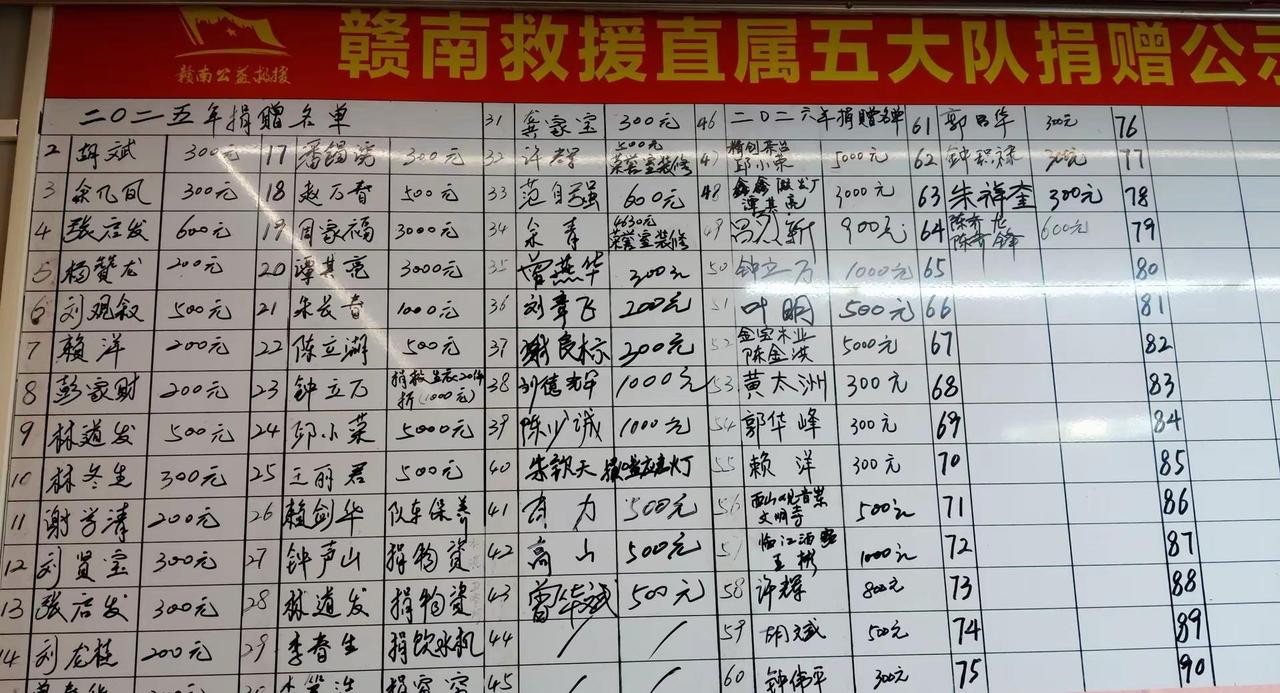 赣南公益救援
赣南救援直属五大队捐赠公示
二〇二五年捐赠名单 31 龚家宝 300元 46 二〇二六年捐赠名单 61 郭吕华 300元 76
2 胡斌 300元 17 潘锡 300元 32 许辉 500元 荣誉室装修 47 精创茶业 邱小荣 5000元 62 钟积禄 300元 77
3 余凡凤 300元 18 赵万春 500元 33 范自强 600元 48 鑫鑫 厂 谭其亮 3000元 63 朱祥奎 300元 78
4 张启发 600元 19 周家福 3000元 34 余青 4630元 荣誉室装修 49 900元 64 陈奔龙 陈奔锋 600元 79
5 杨赞龙 200元 20 谭其亮 3000元 35 曾燕华 300元 50 钟立万 1000元 65 80
6 刘观叙 500元 21 朱长春 1000元 36 刘章飞 200元 51 叶明 500元 66 81
7 赖洋 200元 22 陈立湖 500元 37 谢良标 200元 52 金宝木业 陈金洪 5000元 67 82
8 彭家财 200元 23 钟立万 捐救生衣20件 折(1000元) 38 刘德辉 1000元 53 黄太洲 300元 68 83
9 林道发 500元 24 邱小荣 5000元 39 陈少诚 1000元 54 郭华峰 300元 69 84
10 林冬生 300元 25 王丽君 500元 40 朱钦天 应急灯 55 赖洋 300元 70 85
11 谢芳清 200元 26 赖剑华 队车保养 41 有力 500元 56 西山观音堂 文明寺 500元 71 86
12 刘贤宝 300元 27 钟声山 捐物资 42 高山 500元 57 临江酒 王彬 1000元 72 87
13 张启发 300元 28 林道发 捐物资 43 曾华斌 500元 58 许辉 800元 73 88
14 刘龙桂 200元 29 李春生 捐饮水机 44 / / 59 胡斌 500元 74 89
45 / / 60 钟伟平 300元 75 90